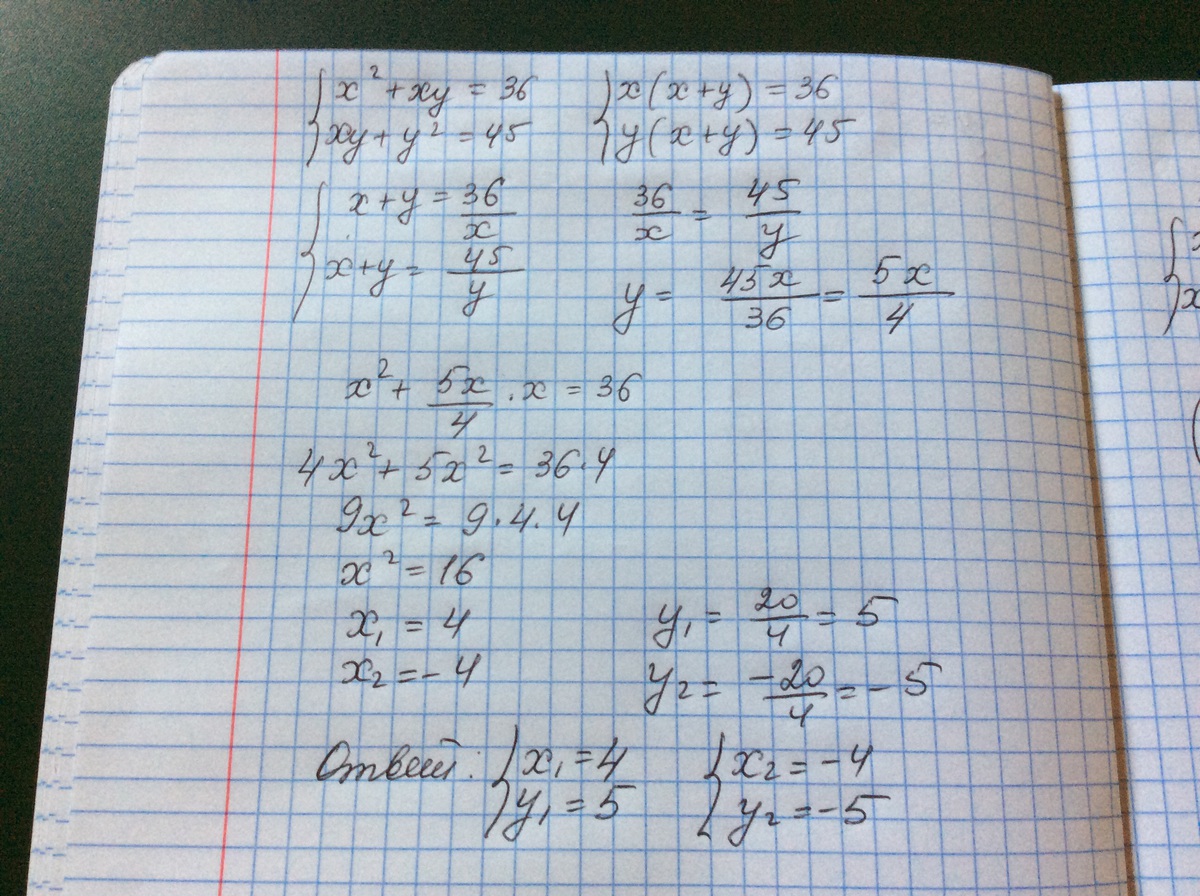 { x² + xy = 36    { x(x + y) = 36
{ xy + y² = 45    { y(x + y) = 45
{ x + y = 36/x    36/x = 45/y
{ x + y = 45/y    y = 45x/36 = 5x/4
x² + 5x/4 · x = 36
4x² + 5x² = 36·4
9x² = 9·4·4
x² = 16
x₁ = 4    y₁ = 20/4 = 5
x₂ = -4    y₂ = -20/4 = -5
Ответ: { x₁ = 4    { x₂ = -4
{ y₁ = 5    { y₂ = -5
{ x